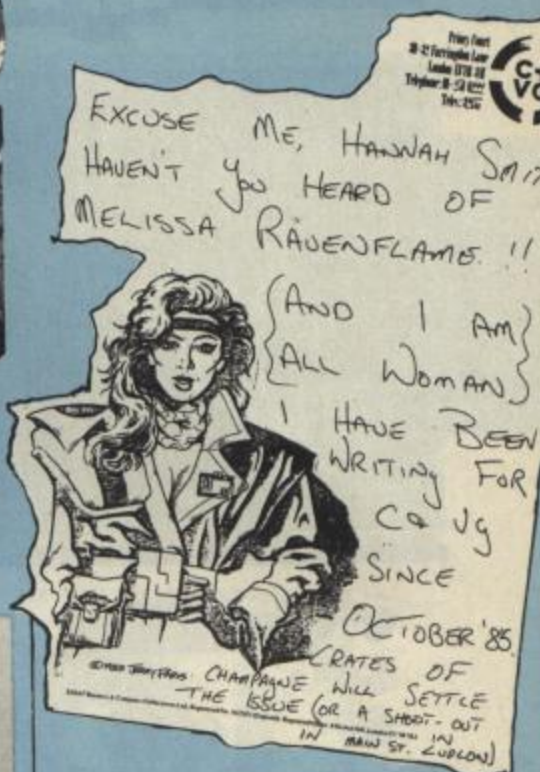 Priory Court
30-32 Farringdon Lane
London
C+
VG
EXCUSE ME, HANNAH SMIT
HAVEN'T YOU HEARD OF
MELISSA RAVENFLAME!!
(AND I AM)
(ALL WOMAN)
I HAVE BEEN
WRITING FOR
C& VG
SINCE
OCTOBER '85.
CRATES OF
CHAMPAGNE WILL SETTLE
THE ISSUE (OR A SHOOT-OUT
IN
IN MAIN ST. LUDLON)